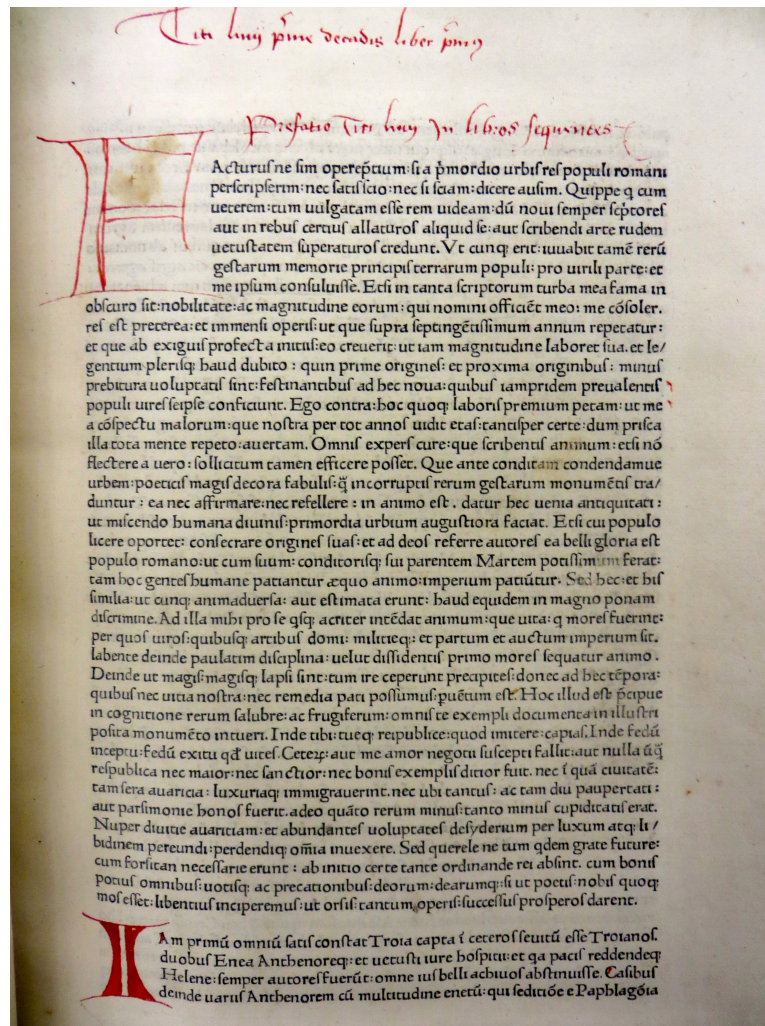 Titi liuij p̄me decadis liber p̄mus
Prefatio Titi liuij In libros sequentes
FActuruſne ſim operep̄tium:ſi a p̄mordio urbiſ reſ populi romani
perſcripſerim:nec ſatiſ ſcio:nec ſi ſciam:dicere auſim. Quippe q cum
ueterem:tum uulgatam eſſe rem uideam:dū noui ſemper ſcp̄toreſ
aut in rebuſ certiuſ allaturoſ aliquid ſe:aut ſcribendi arte rudem
uetuſtatem ſuperaturoſ credunt. Vt cunqꝫ erit:iuuabit tamē rerū
geſtarum memorie principiſ terrarum populi:pro uirili parte:et
me ipſum conſuluiſſe. Etſi in tanta ſcriptorum turba mea fama in
obſcuro ſit:nobilitate:ac magnitudine eorum:qui nomini officiēt meo:me cōſoler.
reſ eſt preterea:et immenſi operiſ:ut que ſupra ſeptingētiſſimum annum repetatur:
et que ab exiguiſ profecta initiiſ:eo creuerit:ut iam magnitudine laboret ſua.et le/
gentium pleriſqꝫ haud dubito : quin prime origineſ:et proxima originibuſ: minuſ
prebitura uoluptatiſ ſint:feſtinantibuſ ad hec noua:quibuſ iampridem preualentiſ
populi uireſ ſeipſe conficiunt. Ego contra:hoc quoqꝫ laboriſ premium petam:ut me
a cōſpectu malorum:que noſtra per tot annoſ uidit etaſ:tantiſper certe:dum priſca
illa tota mente repeto:auertam. Omniſ experſ cure:que ſcribentiſ animum:etſi nō
flectere a uero:ſollicitum tamen efficere poſſet. Que ante conditam condendamue
urbem:poeticiſ magiſ decora fabuliſ:q̄ incorruptiſ rerum geſtarum monumētiſ tra/
duntur : ea nec affirmare:nec refellere : in animo eſt . datur hec uenia antiquitati :
ut miſcendo humana diuiniſ:primordia urbium auguſtiora faciat. Etſi cui populo
licere oportet: conſecrare origineſ ſuaſ:et ad deoſ referre autoreſ ea belli gloria eſt
populo romano:ut cum ſuum:conditoriſqꝫ ſui parentem Martem potiſſimum ferat:
tam hoc genteſ humane patiantur æquo animo:imperium patiūtur. Sed hec:et hiſ
ſimilia:ut cunqꝫ animaduerſa: aut eſtimata erunt: haud equidem in magno ponam
diſcrimine. Ad illa mihi pro ſe qſqꝫ acriter intēdat animum:que uita:q moreſ fuerint:
per quoſ uiroſ:quibuſqꝫ artibuſ domi: militieqꝫ: et partum et auctum imperium ſit.
labente deinde paulatim diſciplina: uelut diſſidentiſ primo moreſ ſequatur animo .
Deinde ut magiſ:magiſqꝫ lapſi ſint:tum ire ceperunt precipiteſ:donec ad hec tēpora:
quibuſ nec uitia noſtra:nec remedia pati poſſumuſ:puētum eſt. Hoc illud eſt p̄cipue
in cognitione rerum ſalubre:ac frugiferum:omniſ te exempli documenta in illuſtri
poſita monumēto intueri. Inde tibi:tueqꝫ reipublice:quod imitere:capiaſ.Inde fedū
inceptu:fedū exitu qd̄ uiteſ. Ceteꝝ:aut me amor negotii ſuſcepti fallit:aut nulla ūq̄
reſpublica nec maior:nec ſanctior:nec boniſ exempliſ ditior fuit. nec ī quā ciuitatē:
tam ſera auaricia: luxuriaqꝫ immigrauerint.nec ubi tantuſ:ac tam diu paupertati:
aut parſimonie bonoſ fuerit.adeo quāto rerum minuſ:tanto minuſ cupiditatiſ erat.
Nuper diuitie auaritiam:et abundanteſ uoluptateſ deſyderium per luxum atqꝫ li/
bidinem pereundi:perdendiqꝫ om̄ia inuexere. Sed querele ne tum qdem grate future:
cum forſitan neceſſarie erunt : ab initio certe tante ordinande rei abſint. cum boniſ
potiuſ omnibuſ:uotiſqꝫ ac precationibuſ:deorum:dearumqꝫ:ſi ut poetiſ:nobiſ quoqꝫ
moſ eſſet:libentiuſ inciperemuſ:ut orſiſ:tantum operiſ:ſucceſſuſ proſperoſ darent.
IAm primū omniū ſatiſ conſtat Troia capta ī ceteroſ ſeuitū eſſe Troianoſ.
duobuſ Enea Anthenoreqꝫ:et uetuſti iure hoſpitii:et qa paciſ reddendeqꝫ
Helene:ſemper autoreſ fuerūt:omne iuſ belli achiuoſ abſtinuiſſe. Caſibuſ
deinde uariiſ Anthenorem cū multitudine enetū:qui ſeditiōe e Paphlagōia